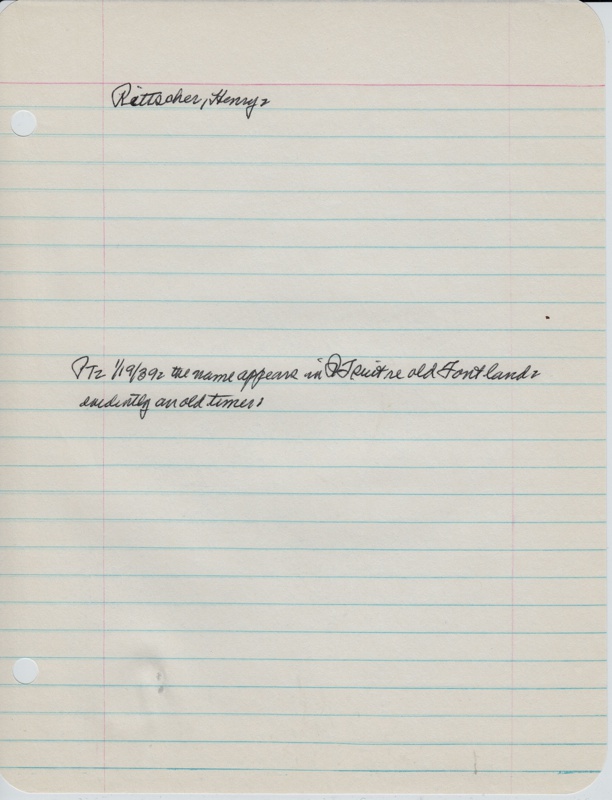 Rittscher, Henry.
PT. 1/19/39. the name appears in QT suit re old Font land.
evidently an old timer.